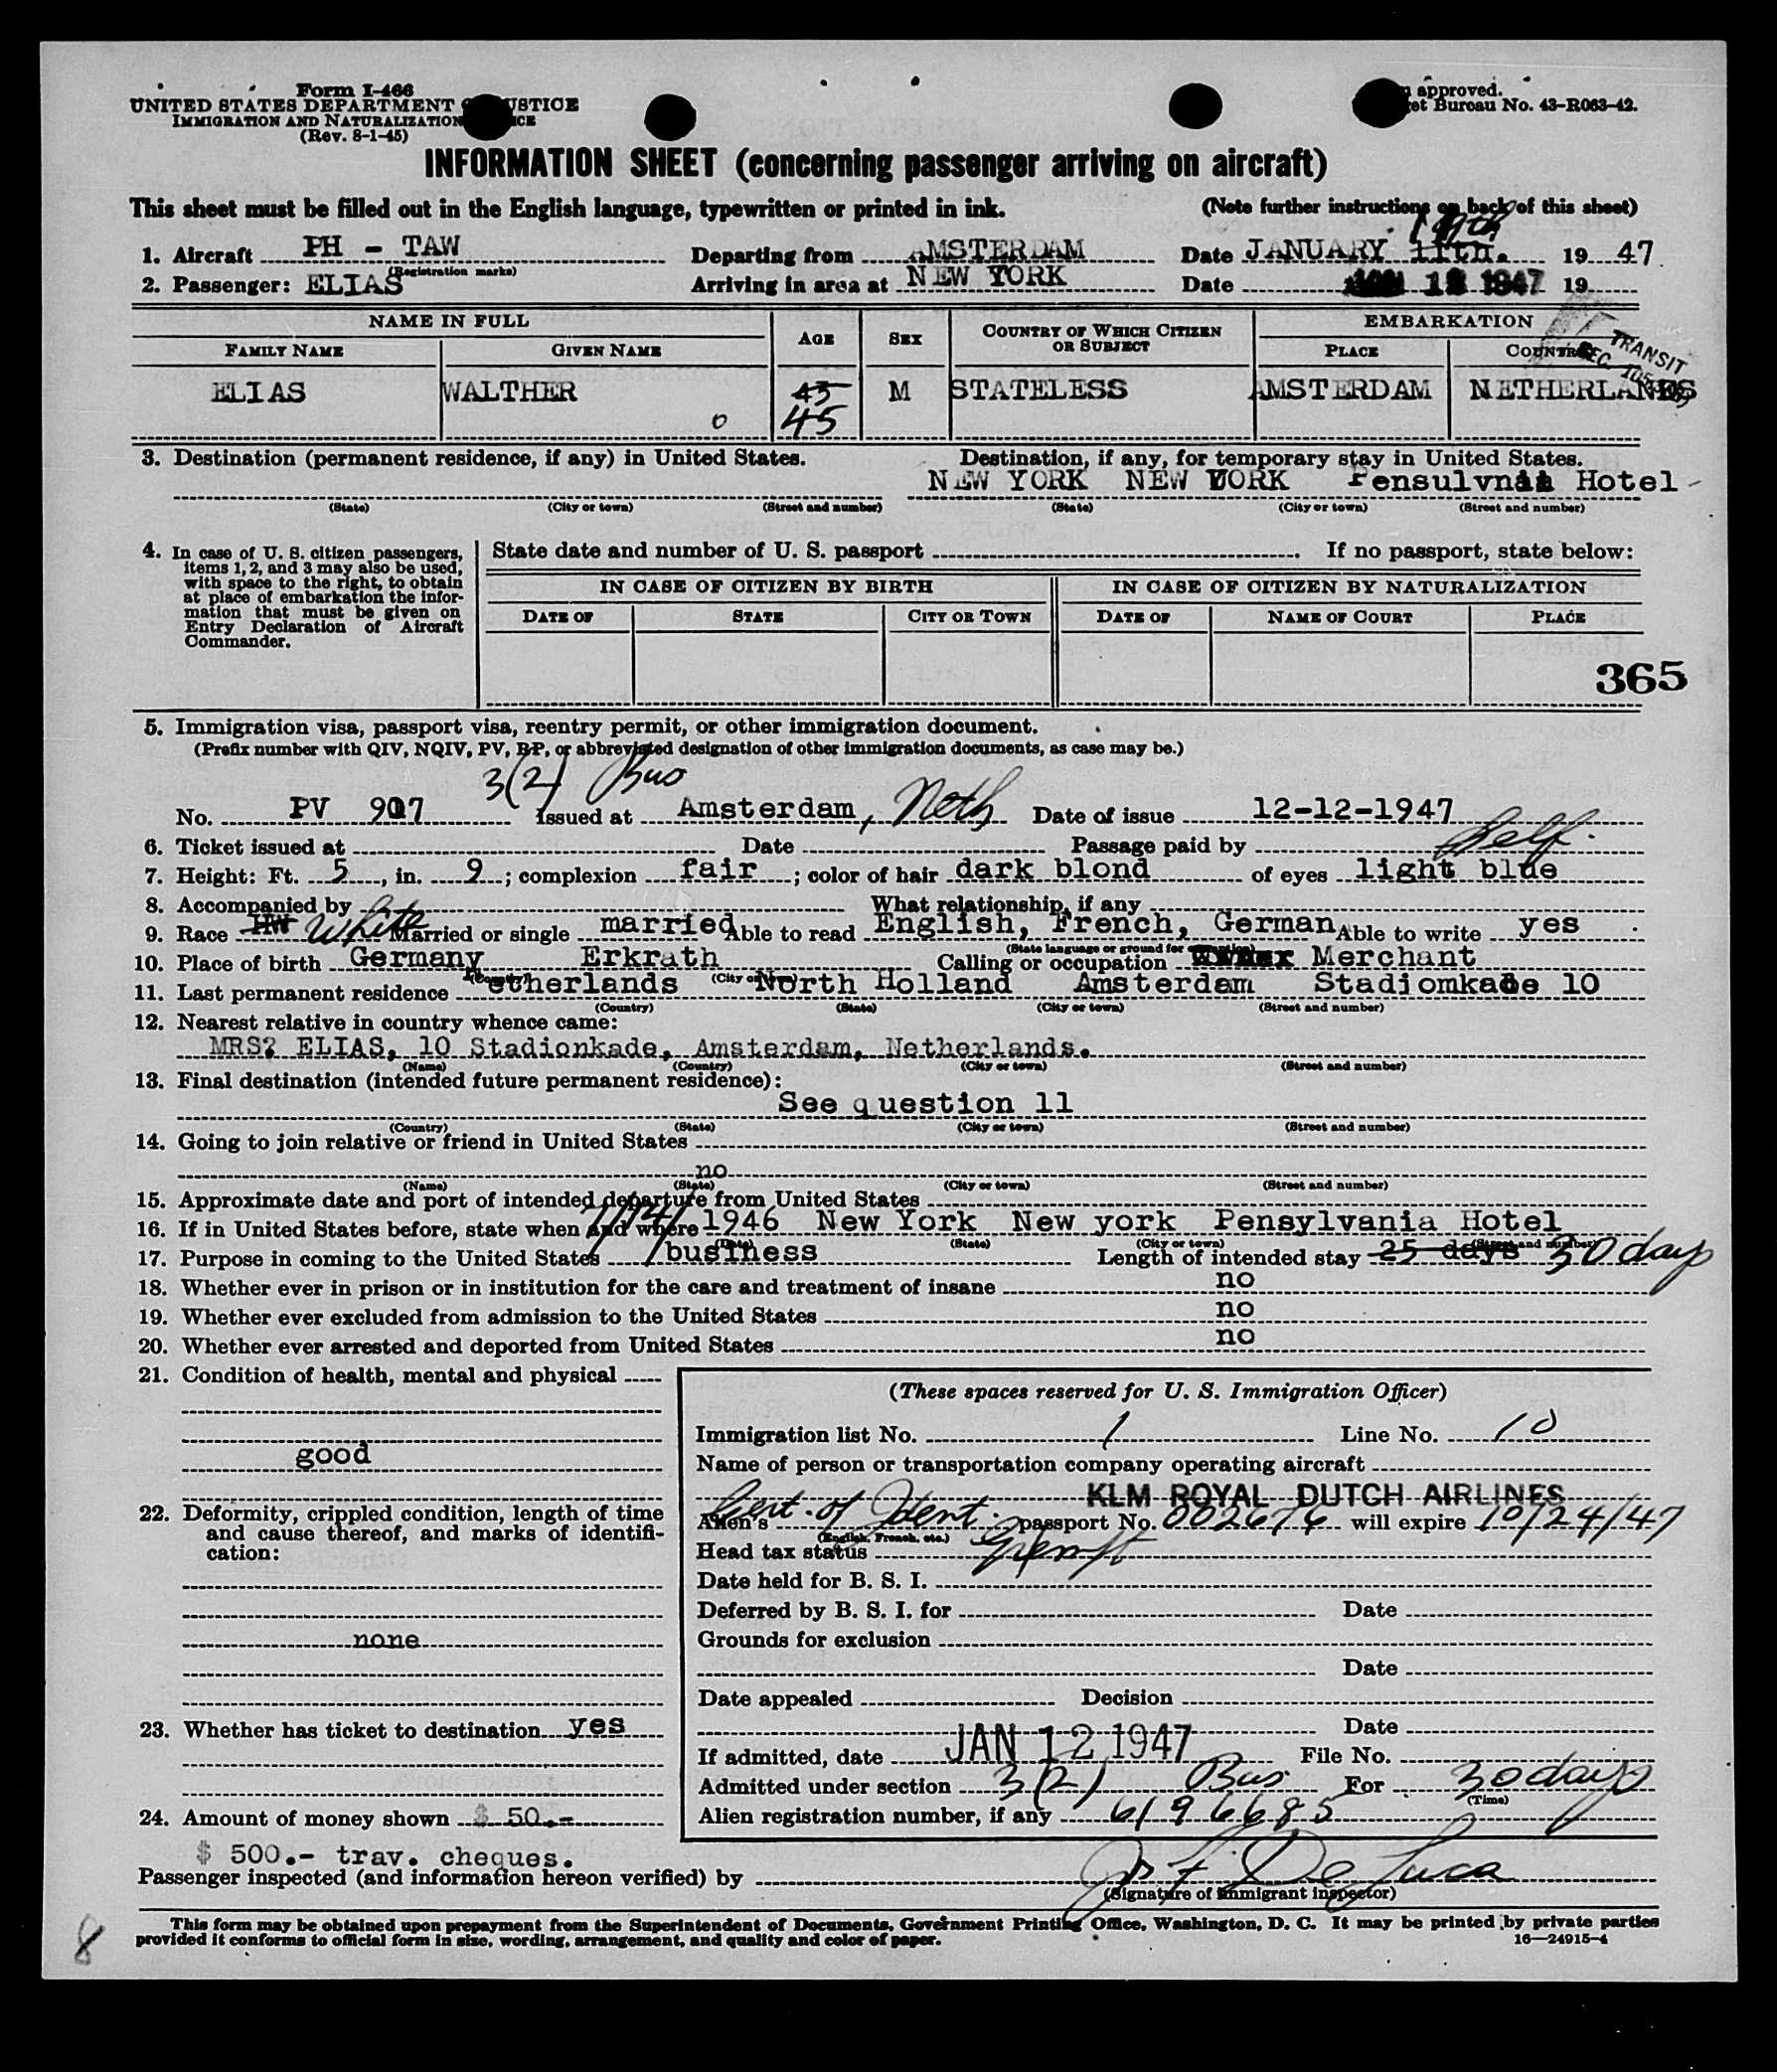 Form I-466
UNITED STATES DEPARTMENT OF JUSTICE
IMMIGRATION AND NATURALIZATION SERVICE
(Rev. 8-1-45)
approved.
et Bureau No. 43-R063-42.
INFORMATION SHEET (concerning passenger arriving on aircraft)
This sheet must be filled out in the English language, typewritten or printed in ink. (Note further instructions on back of this sheet)
1. Aircraft PH - TAW Departing from AMSTERDAM Date JANUARY 11th. 19 47
(Registration marks)
2. Passenger: ELIAS Arriving in area at NEW YORK Date JAN 12 1947 19
NAME IN FULL AGE SEX COUNTRY OF WHICH CITIZEN OR SUBJECT EMBARKATION
FAMILY NAME GIVEN NAME PLACE COUNTRY
TRANSIT
SEC.
ELIAS WALTHER 45 M STATELESS AMSTERDAM NETHERLANDS
0 45
3. Destination (permanent residence, if any) in United States. Destination, if any, for temporary stay in United States.
NEW YORK NEW YORK Pensulvnia Hotel
(State) (City or town) (Street and number) (State) (City or town) (Street and number)
4. In case of U. S. citizen passengers, items 1, 2, and 3 may also be used, with space to the right, to obtain at place of embarkation the information that must be given on Entry Declaration of Aircraft Commander.
State date and number of U. S. passport If no passport, state below:
IN CASE OF CITIZEN BY BIRTH IN CASE OF CITIZEN BY NATURALIZATION
DATE OF STATE CITY OR TOWN DATE OF NAME OF COURT PLACE
365
5. Immigration visa, passport visa, reentry permit, or other immigration document.
(Prefix number with QIV, NQIV, PV, RP, or abbreviated designation of other immigration documents, as case may be.)
3(2) Bus
No. PV 907 Issued at Amsterdam, Neth Date of issue 12-12-1947
6. Ticket issued at Date Passage paid by Self.
7. Height: Ft. 5, in. 9; complexion fair; color of hair dark blond of eyes light blue
8. Accompanied by What relationship, if any
9. Race HW White Married or single married Able to read English, French, German Able to write yes
(State language or ground for exemption)
10. Place of birth Germany Erkrath Calling or occupation Merchant
(Country) (City or town)
11. Last permanent residence Netherlands North Holland Amsterdam Stadiomkade 10
(Country) (State) (City or town) (Street and number)
12. Nearest relative in country whence came:
MRS? ELIAS, 10 Stadionkade, Amsterdam, Netherlands.
(Name) (Country) (City or town) (Street and number)
13. Final destination (intended future permanent residence):
See question 11
(Country) (State) (City or town) (Street and number)
14. Going to join relative or friend in United States
no
(Name) (State) (City or town) (Street and number)
15. Approximate date and port of intended departure from United States
16. If in United States before, state when and where 1946 New York New york Pensylvania Hotel
(Date) (State) (City or town) (Street and number)
17. Purpose in coming to the United States business Length of intended stay 25 days 30 days
18. Whether ever in prison or in institution for the care and treatment of insane no
19. Whether ever excluded from admission to the United States no
20. Whether ever arrested and deported from United States no
21. Condition of health, mental and physical
good
22. Deformity, crippled condition, length of time and cause thereof, and marks of identification:
none
23. Whether has ticket to destination yes
24. Amount of money shown $ 50.-
$ 500.- trav. cheques.
(These spaces reserved for U. S. Immigration Officer)
Immigration list No. 1 Line No. 10
Name of person or transportation company operating aircraft
KLM ROYAL DUTCH AIRLINES
Alien's Cert. of Ident. passport No. 002676 will expire 10/24/47
(English, French, etc.)
Head tax status Exempt
Date held for B. S. I.
Deferred by B. S. I. for Date
Grounds for exclusion
Date
Date appealed Decision
Date
If admitted, date JAN 12 1947 File No.
Admitted under section 3(2) Bus For 30 days
(Time)
Alien registration number, if any 6196685
Passenger inspected (and information hereon verified) by Jos F. De Luca
(Signature of immigrant inspector)
This form may be obtained upon prepayment from the Superintendent of Documents, Government Printing Office, Washington, D. C. It may be printed by private parties
provided it conforms to official form in size, wording, arrangement, and quality and color of paper.
16—24915-4
8